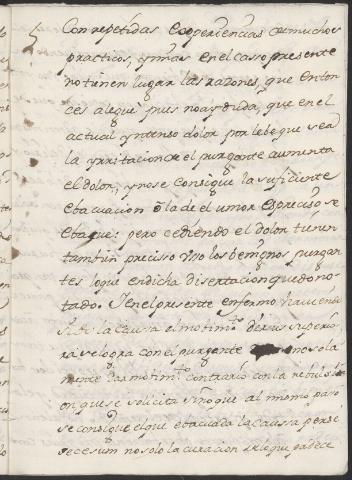 Con repetidas experiencias de muchos
practicos, y mas en el caso presente
no tienen lugar las razones, que enton
ces alegue pues no ay duda, que en el
actual yntenso dolor por lebe que sea
la yrritacion de el purgante aumenta
el dolor, y no se consigue la suficiente
ebacuacion de la de el umor es preciso se
ebaque: pero cediendo el dolor tienen
tambien preciso uso los benignos purgan
tes lo que en dicha disertacion quedo no
tado. Y en el presente enfermo haviendo
sido la causa el motim.to de sus superio
res se logra con el purgante no sola
mente la motim.to contrario con la rebulsi
on que se solicita sino que al mismo paso
se consigue el que ebacuada la caussa
secesum no solo la curacion de lo que padece